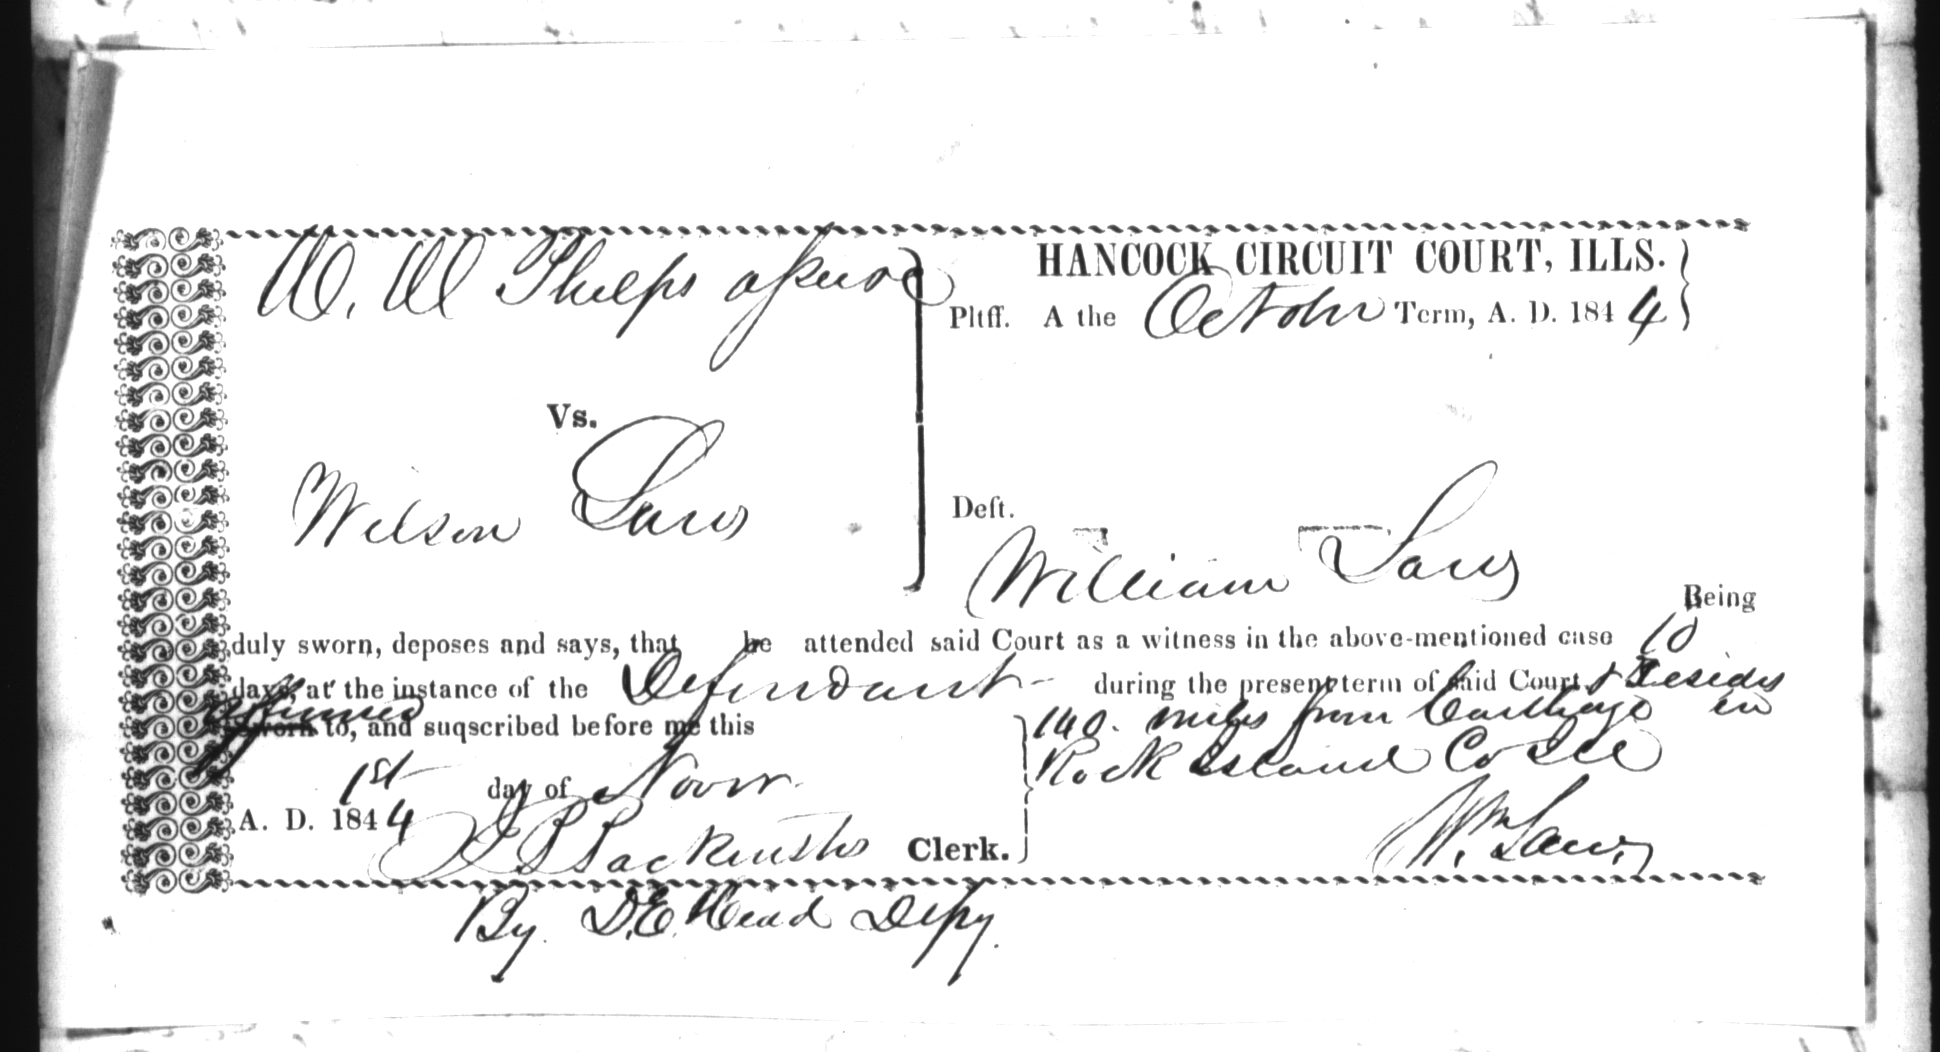 W. W Phelps assnee
HANCOCK CIRCUIT COURT, ILLS.
Pltff. A the October Term, A. D. 1844
Vs.
Wilson Law
Deft.
William Law
Being
duly sworn, deposes and says, that he attended said Court as a witness in the above-mentioned case 10
days, at the instance of the Defendant - during the present term of said Court & resides
140. miles from Carthage in
affirmed
sworn to, and suqscribed before me this
Rock Island Co Ill
1st day of Novr.
A. D. 1844
J B Backenstos Clerk.
Wm. Law.
By. D. E. Head Depy.